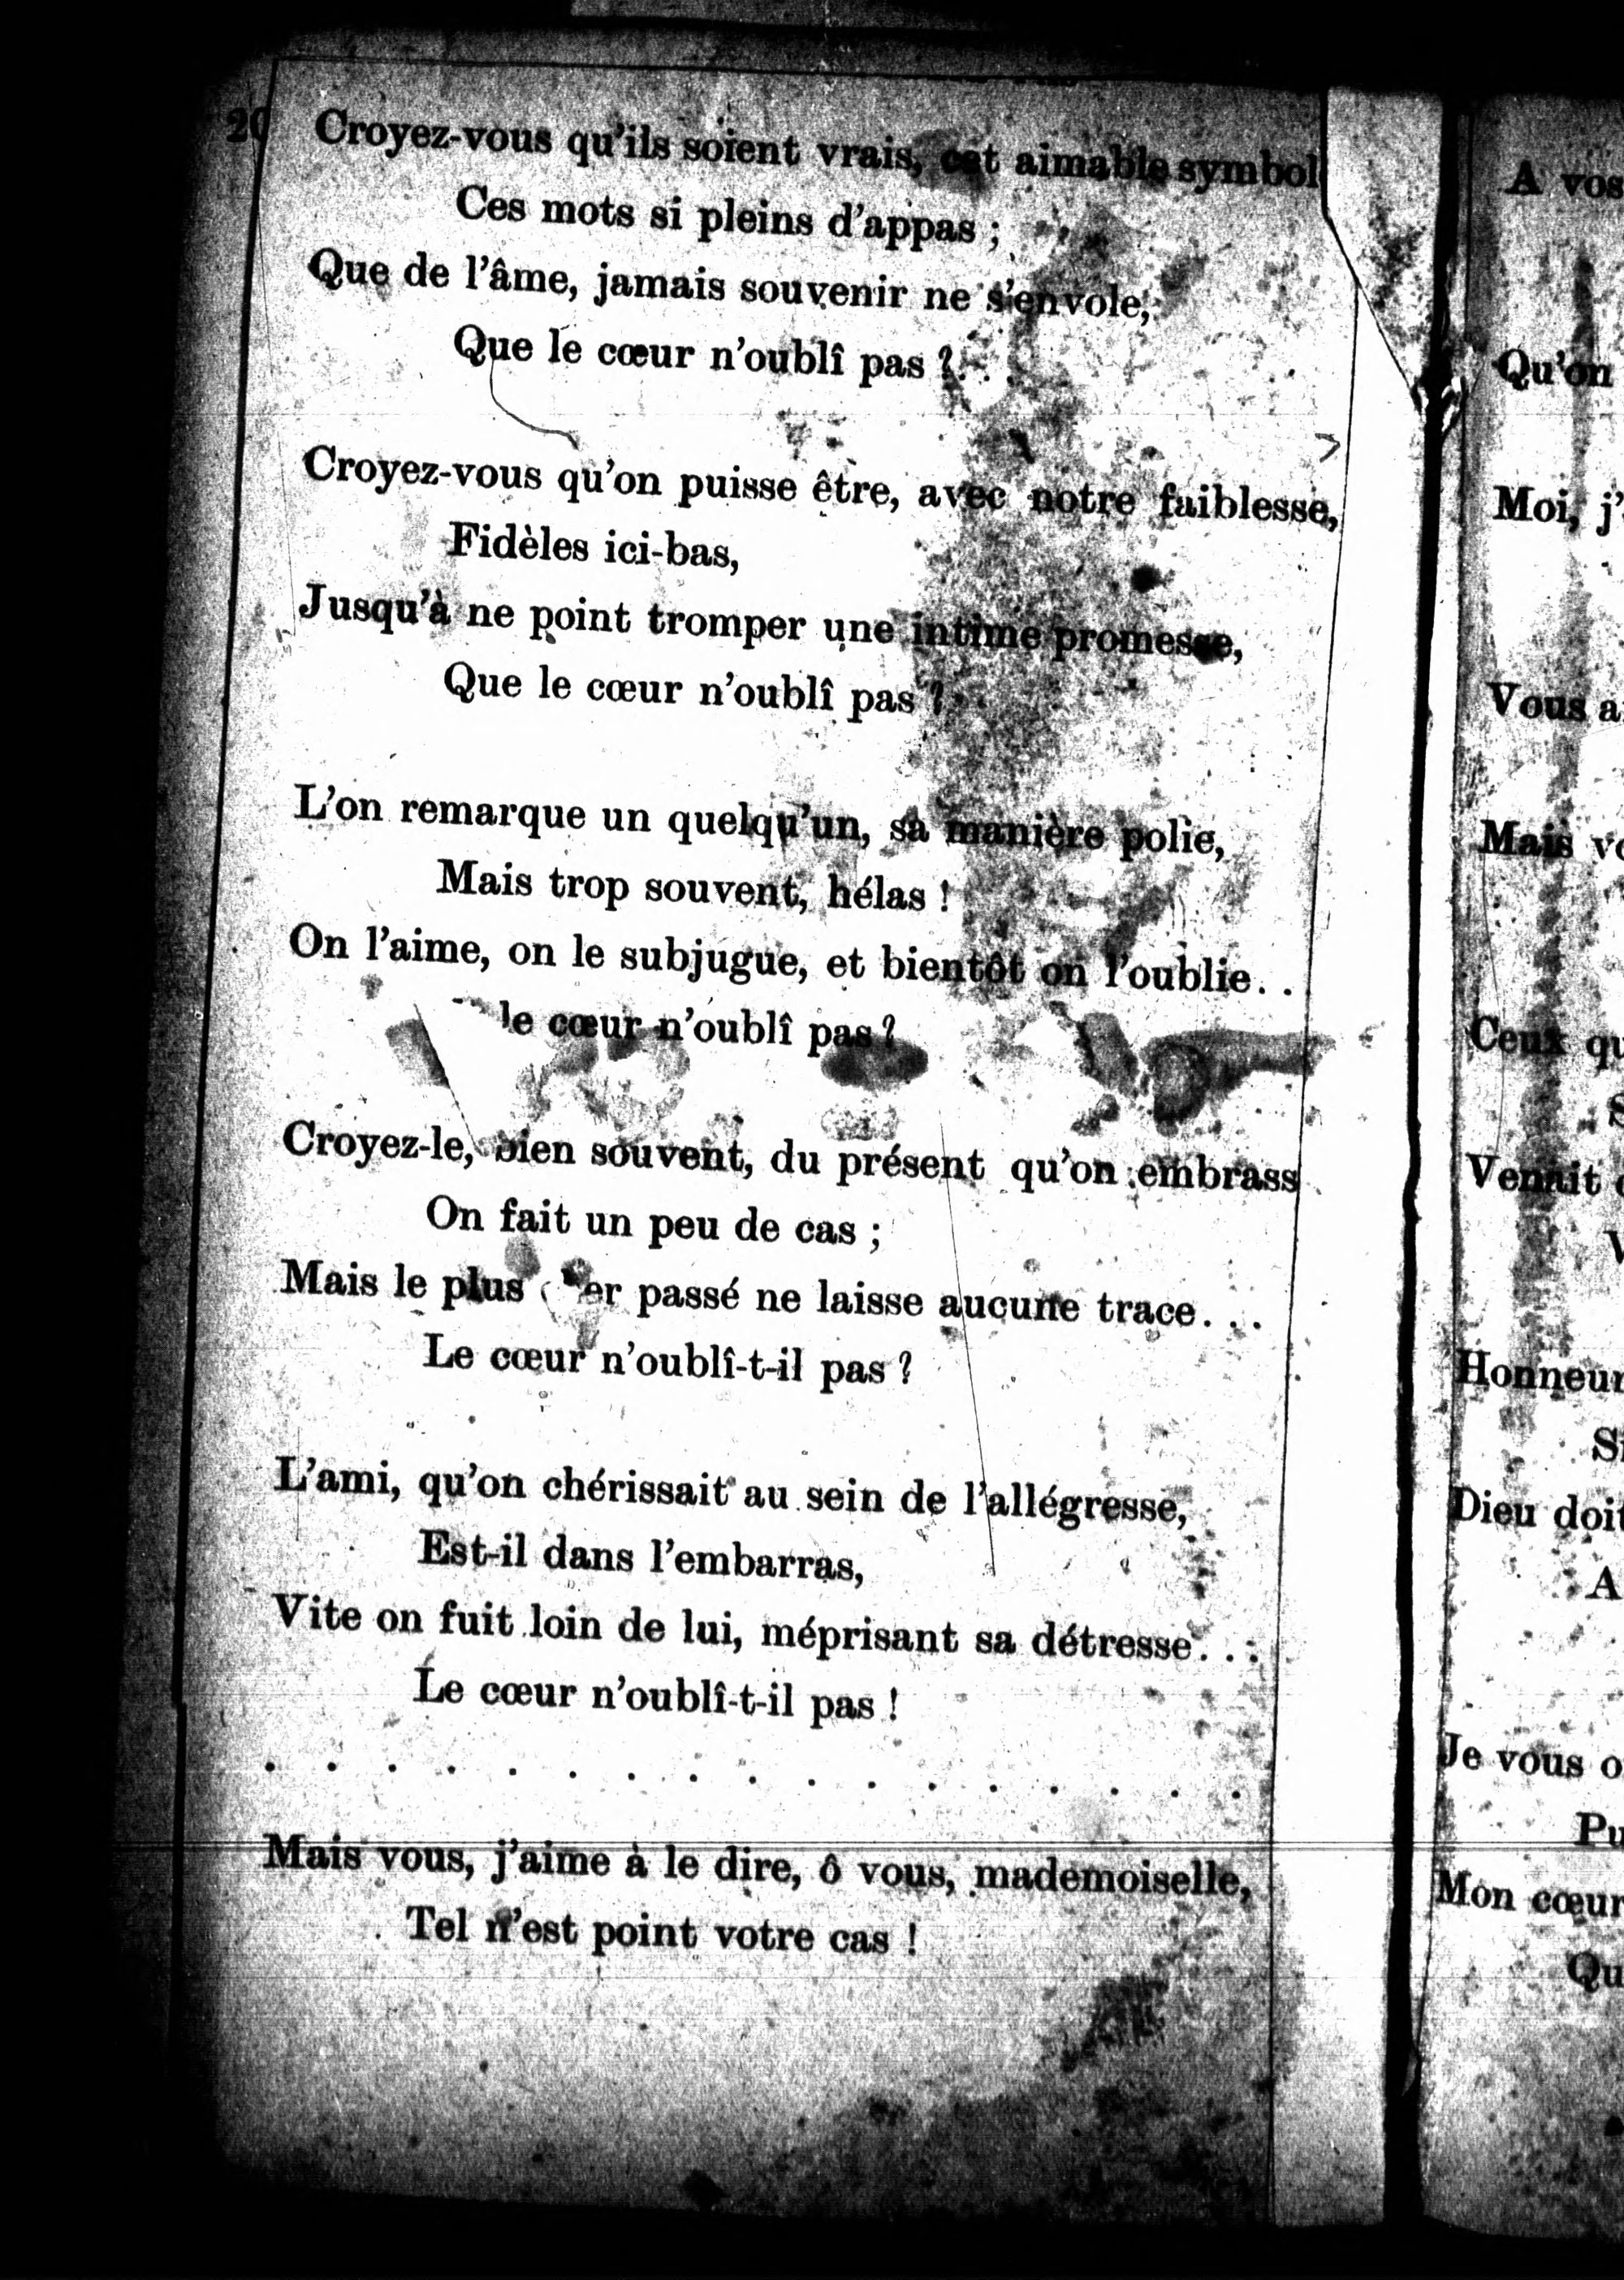 20
Croyez-vous qu'ils soient vrais, cet aimable symbol
Ces mots si pleins d'appas ;
Que de l'âme, jamais souvenir ne s'envole,
Que le cœur n'oublî pas ?. . .
Croyez-vous qu'on puisse être, avec notre faiblesse,
Fidèles ici-bas,
Jusqu'à ne point tromper une intime promesse,
Que le cœur n'oublî pas ?
L'on remarque un quelqu'un, sa manière polie,
Mais trop souvent, hélas !
On l'aime, on le subjugue, et bientôt on l'oublie. .
le cœur n'oublî pas ?
Croyez-le, bien souvent, du présent qu'on embrass
On fait un peu de cas ;
Mais le plus er passé ne laisse aucune trace. . .
Le cœur n'oublî-t-il pas ?
L'ami, qu'on chérissait au sein de l'allégresse,
Est-il dans l'embarras,
Vite on fuit loin de lui, méprisant sa détresse. . .
Le cœur n'oublî-t-il pas !
. . . . . . . . . . . . . . . . .
Mais vous, j'aime à le dire, ô vous, mademoiselle,
Tel n'est point votre cas !
A vos
Qu'on
Moi, j'
Vous a
Mais vo
Ceux qu
S
Venait
V
Honneur
Si
Dieu doit
A
Je vous o
Pu
Mon cœur
Qu